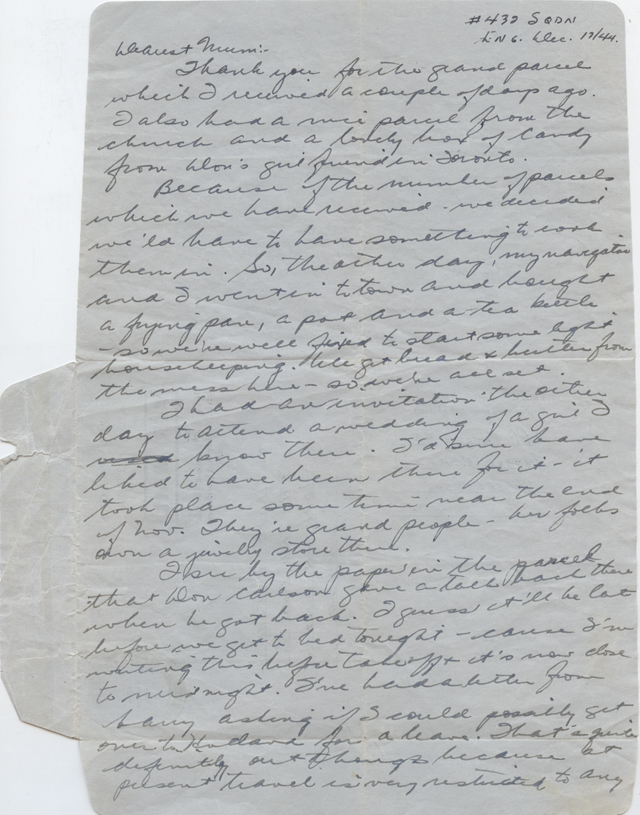 #432 SQDN
ENG. Dec. 17/44.
Dearest Mum:-
Thank you for the grand parcel
which I received a couple of days ago.
I also had a nice parcel from the
church and a lovely box of Candy
from Don's girl friend in Toronto.
Because of the number of parcels
which we have received - we decided
we'ld have to have something to cook
them in. So, the other day, my navigator
and I went into town and bought
a frying pan, a pot and a tea kettle
- so we're well fixed to start some light
housekeeping. We get bread & butter from
the mess here - so we're all set.
I had an invitation the other
day to attend a wedding of a girl I
know there. I'd sure have
liked to have been there for it - it
took place some time near the end
of Nov. They're grand people - her folks
own a jewelry store there.
I see by the paper in the parcel
that Don Carlson gave a talk back there
when he got back. I guess it'll be late
before we get to bed tonight - cause I'm
writing this before takeoff & it's now close
to midnight. I've had a letter from
asking if I could possibly get
over to Holland for a leave. That's quite
definitely out things because at
present travel is very restricted to any